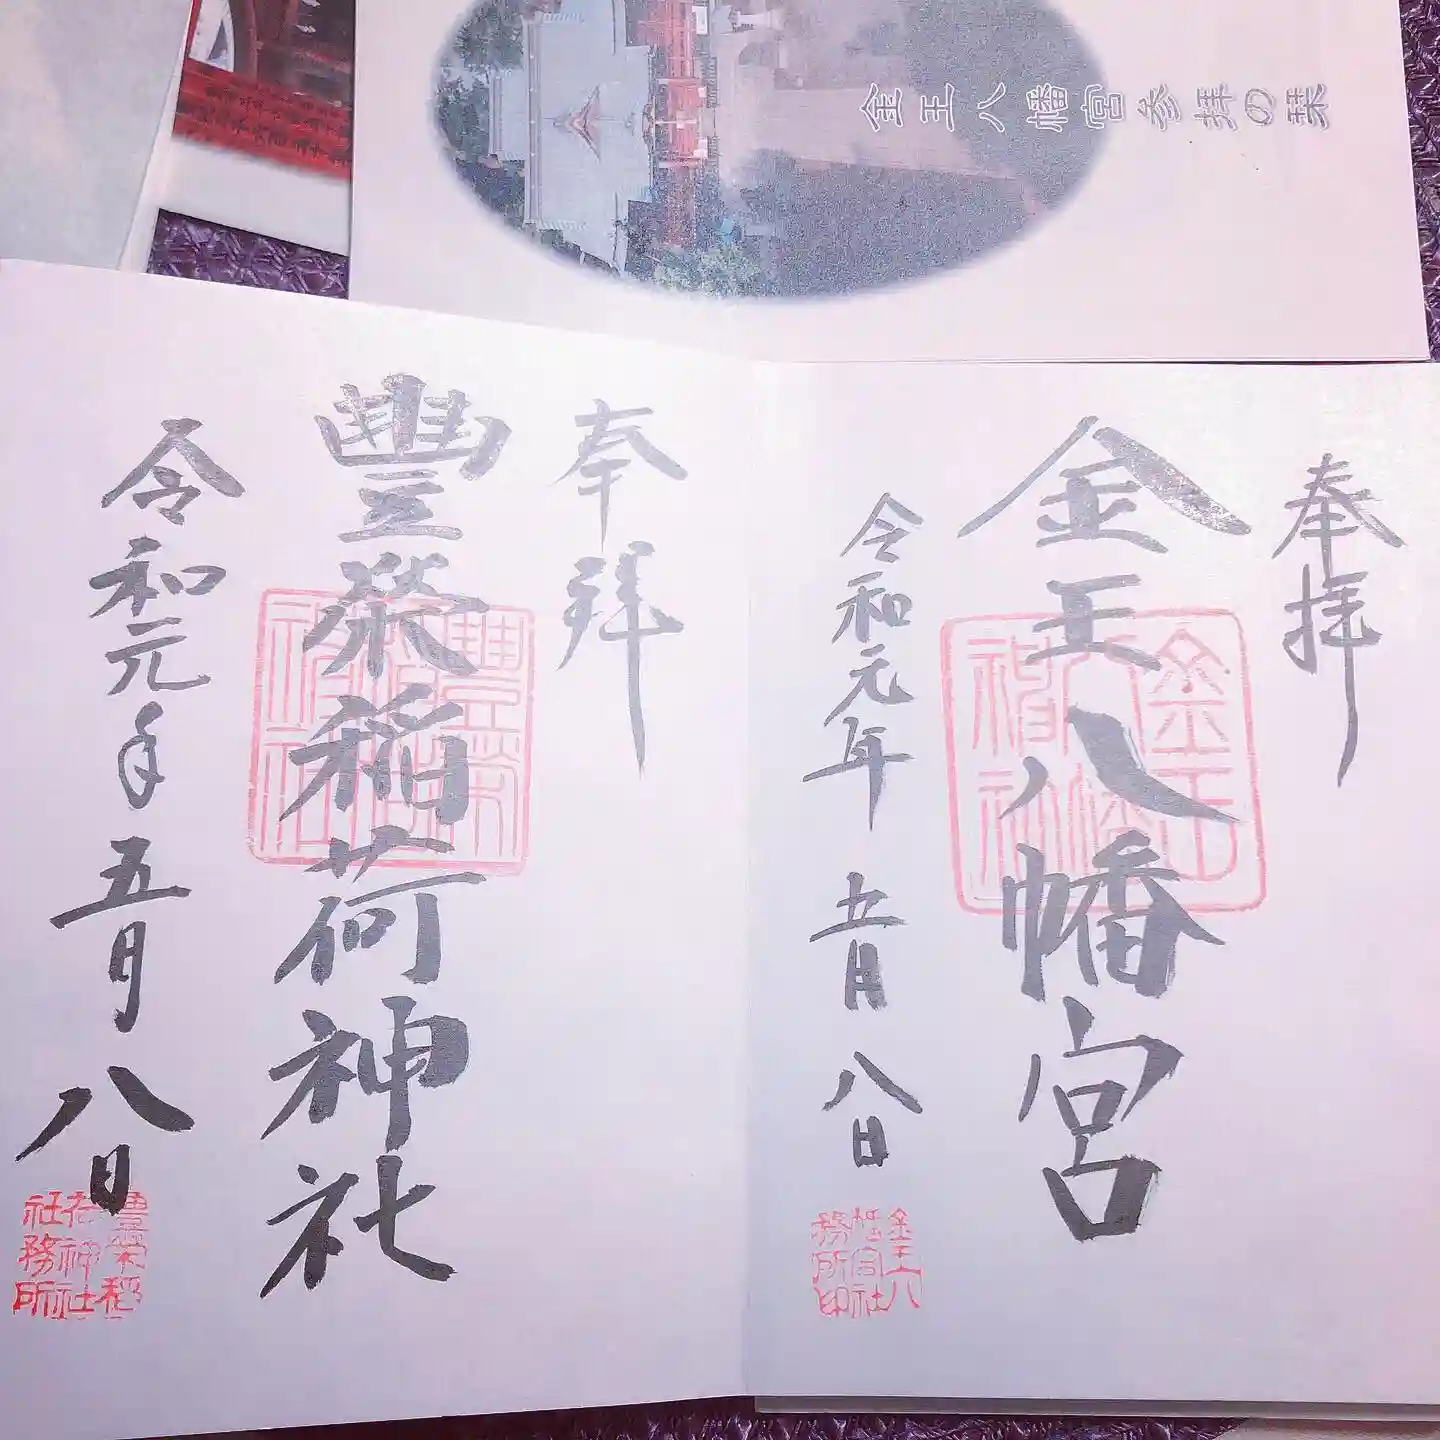 金王八幡宮参拝の栞
奉拝
金王八幡宮
令和元年五月八日
金王八
幡宮社
務所印
奉拜
豐榮稲荷神社
令和元年五月八日
豊栄稲
荷神社
社務所